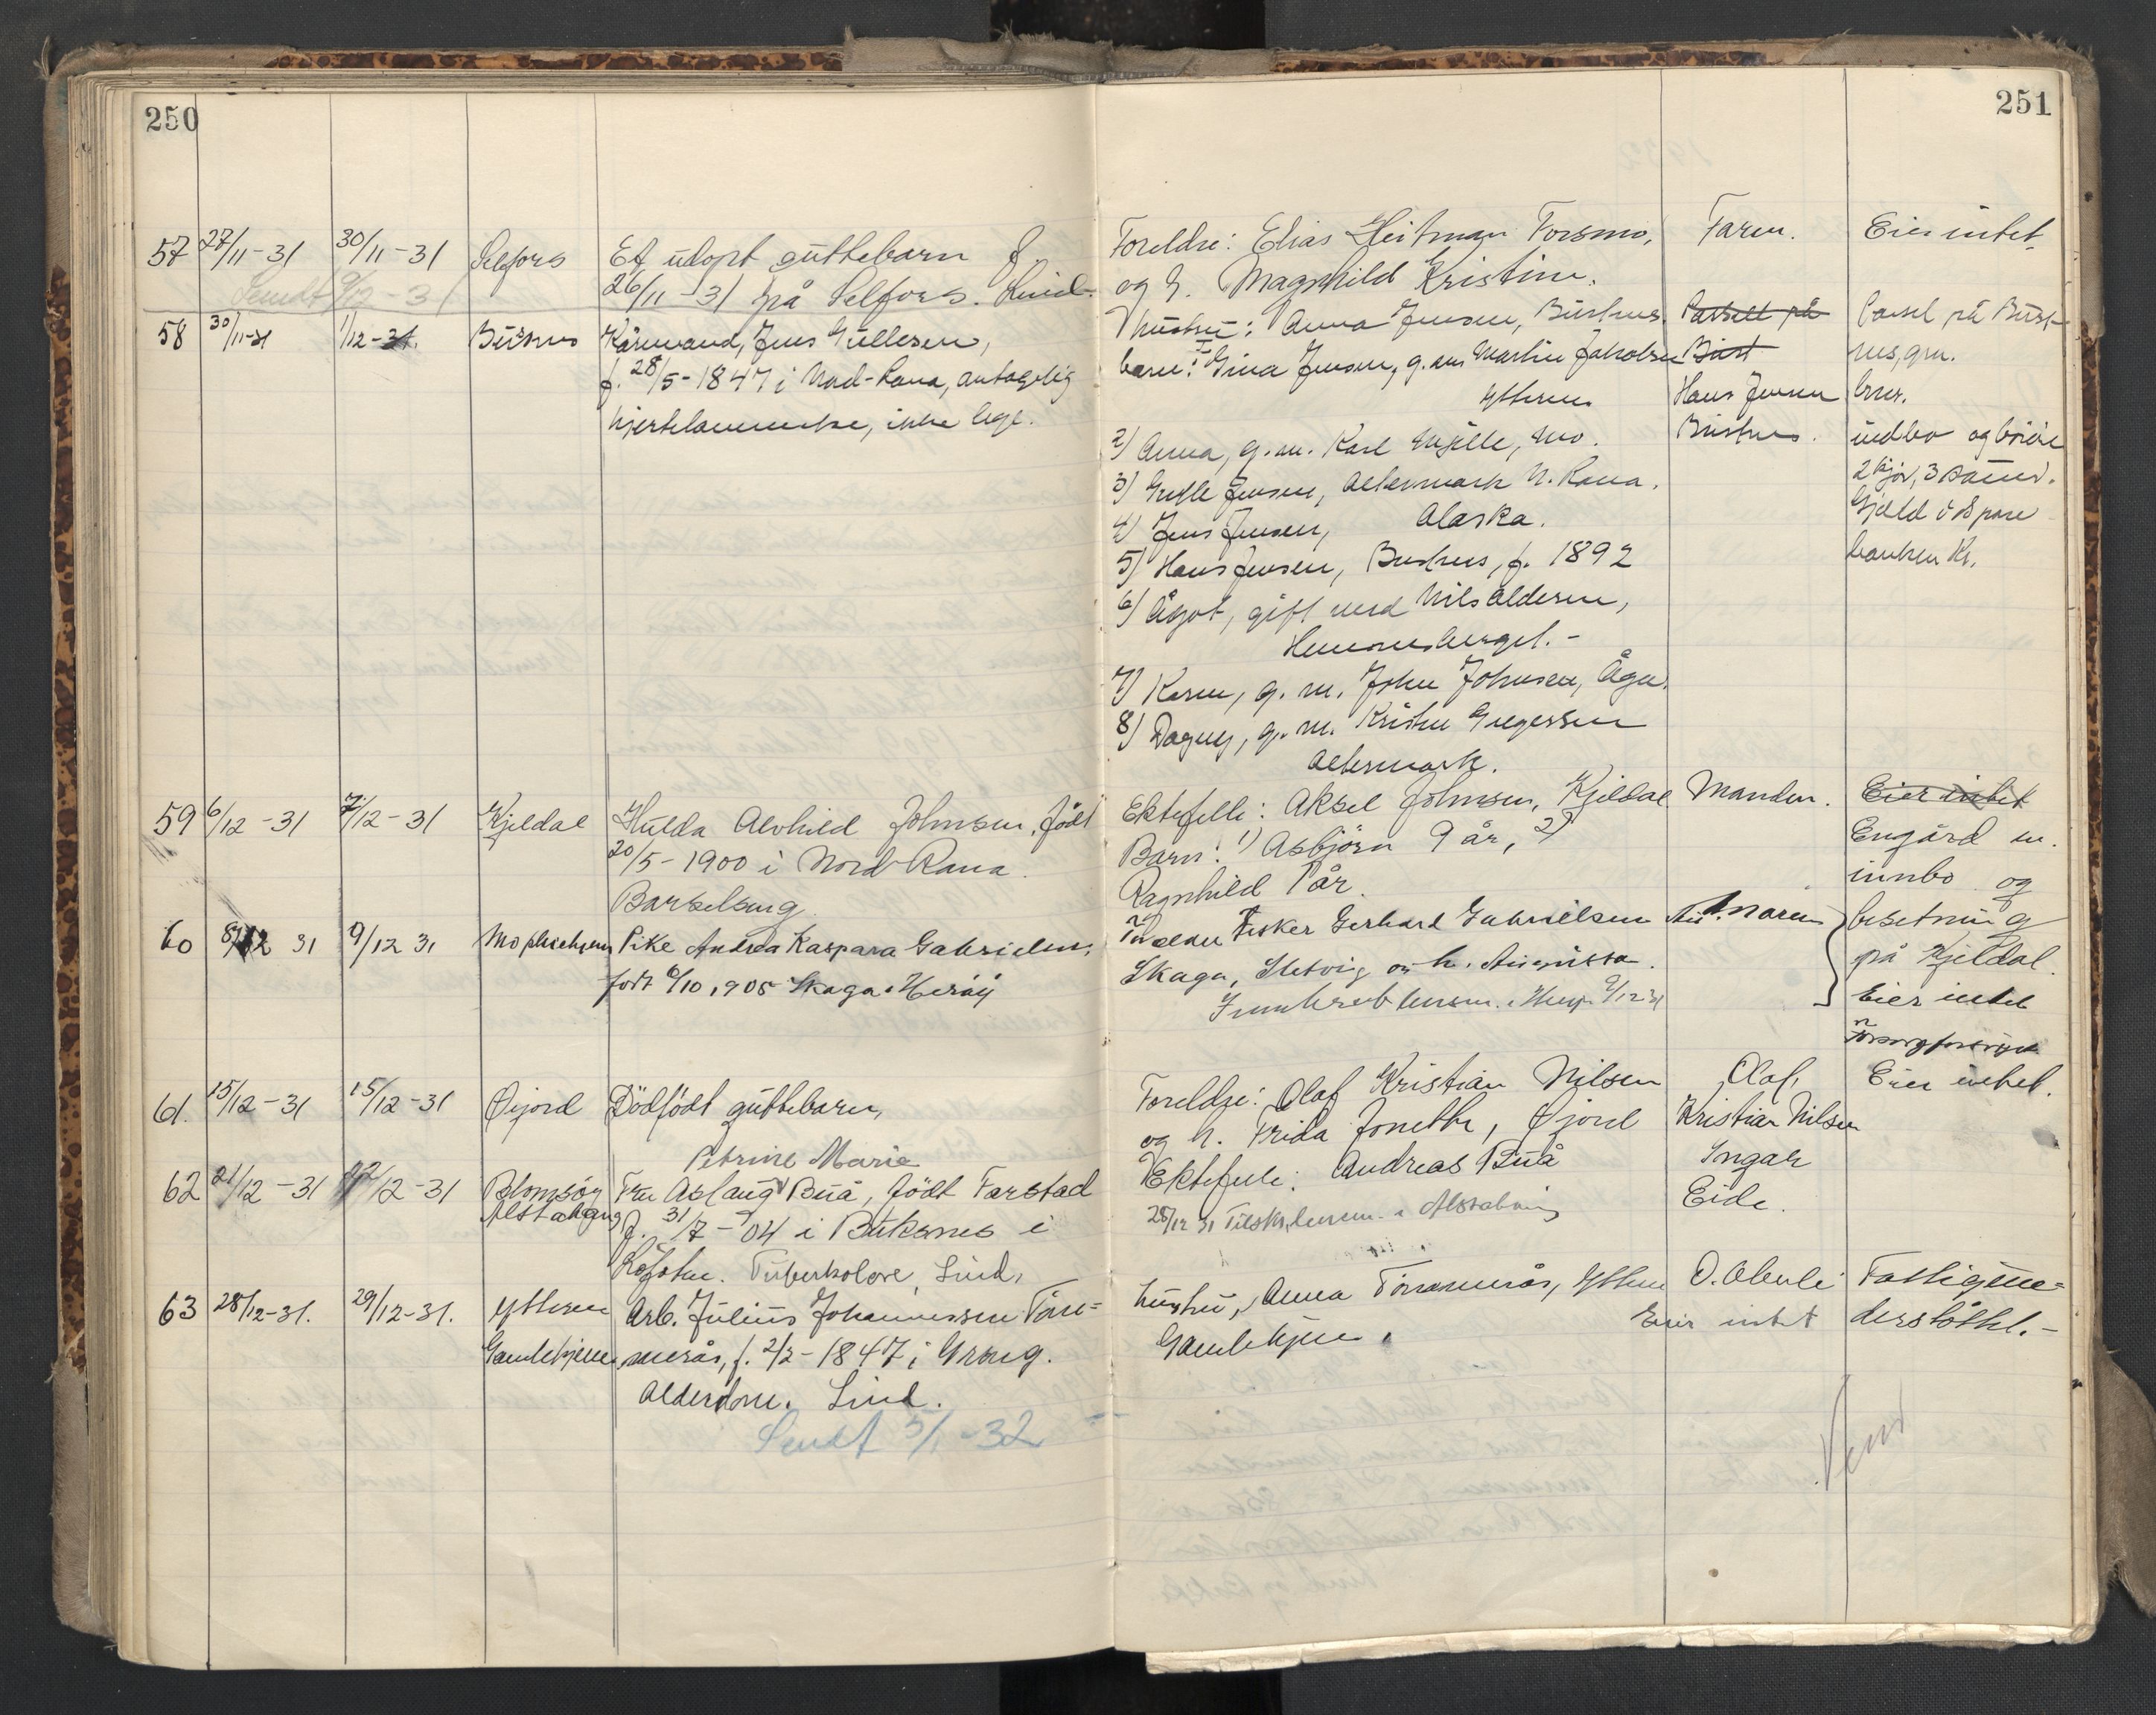 250
251
57 27/11-31 30/11-31 Selfors Et udøpt guttebarn f.
26/11-31 på Selfors. Lind.
Sendt 9/12-31
Foreldre: Elias Heitman Forsmo,
og h. Magnhild Kristine.
Faren.
Eier intet.
58 30/11-31 1/12-31. Bustnes Kårmand, Jens Gullesen,
f. 28/5-1847 i Nord-Rana, antagelig
hjertelammelse, ikke lege.
hustru: Anna Jensen, Bustnes.
barn: 1 Gina Jensen, g. m. Martin Jakobsen
Ytteren
2) Anna, g. m. Karl Mjelle, Mo.
3) Gulle Jensen, Altermark N. Rana.
4) Jens Jensen, Alaska.
5) Hans Jensen, Bustnes, f. 1892
6) Ågot, gift med Nils Aldersen,
Hemnesberget.-
7) Karen, g. m. John Johnsen, Åga.
8) Dagny, g. m. Kristen Gregersen
Altermark.
Parsell på
Bust
Hans Jensen
Bustnes.
Parsel på Bust-
nes, gnr.
bnr.
indbo og
2 kjør, 3 sauer.
Gjeld i Spare
banken Kr.
59 6/12-31 7/12-31 Kjeldal Hulda Alvhild Johnsen, født
20/5-1900 i Nord-Rana.
Barselseng
Ektefelle: Aksel Johnsen, Kjeldal
Barn: 1) Asbjørn 9 år, 2)
Ragnhild 1 år.
Manden.
Eier intet
Engård m.
innbo og
besetning
på Kjeldal.
60 8/12 31 9/12 31 Mo pleiehjem Pike Andrea Kaspara Gabrielsen,
født 6/10 1905 Skaga i Herøy
Foreldre Fisker Gerhard Gabrielsen
Skaga, Sletvig og h. Augusta.
9/12 31
Maren
Eier intet
61. 15/12-31 15/12-31 Øijord Dödfödt guttebarn,
Foreldre: Olaf Kristian Nilsen
og h. Frida Jonette, Øijord
Olaf
Kristian Nilsen
Eier intet.
Petrine Marie
62 21/12-31 22/12-31 Blomsøy Fru Aslaug Buå, født Farstad
Alstahaug f. 31/7-04 i Buksnes i
Lofoten. Tuberkolose, Lind,
Ektefelle: Andreas Buå
28/12 31
Ingar
Eide.
63 28/12-31. 29/12-31. Ytteren Arb. Julius Johannessen Tøm-
Gamlehjem merås, f. 2/2-1847 i Grong.
Alderdom. Lind.
hustru, Anna Tømmerås, Ytteren
Gamlehjem.
Eier intet
Fattigun-
derstøttet.-
Sendt 5/1-32